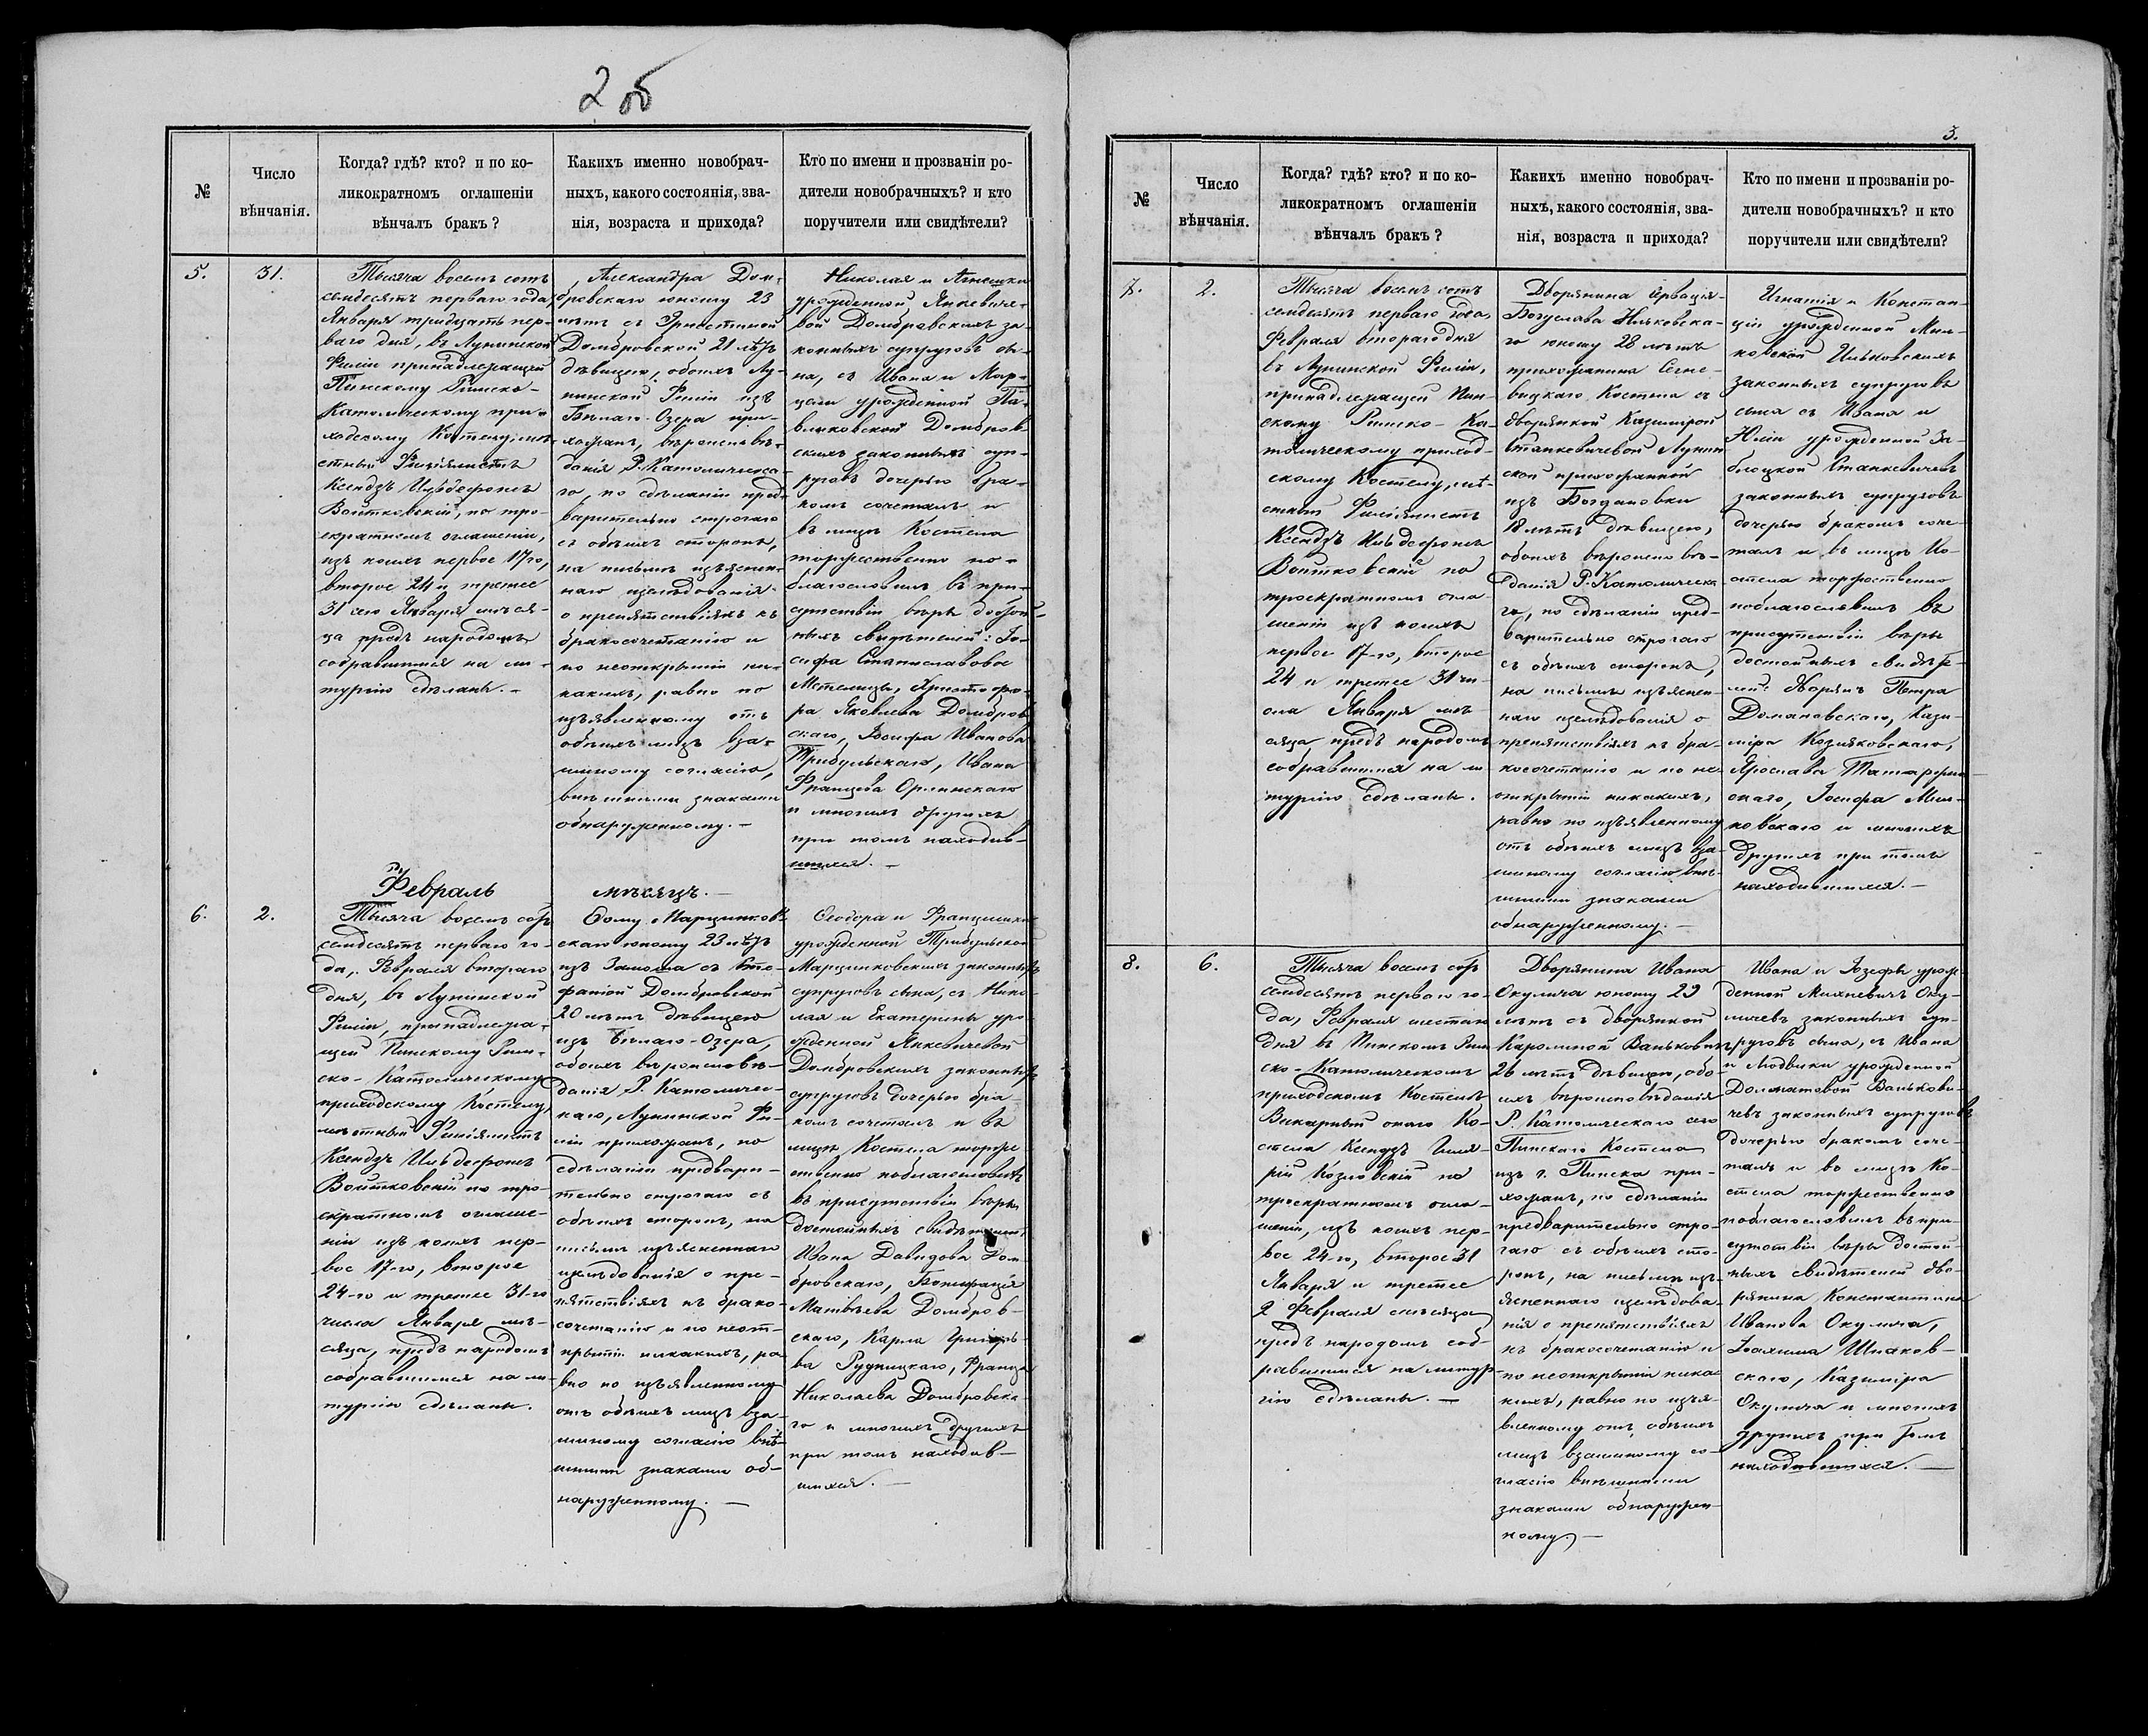 2 об
№
Число
вѣнчанія.
Когда? гдѣ? кто? и по ко-
ликократномъ оглашеніи
вѣнчалъ бракъ?
Какихъ именно новобрач-
ныхъ, какого состоянія, зва-
нія, возраста и прихода?
Кто по имени и прозванію ро-
дители новобрачныхъ? и кто
поручители или свидѣтели?
5.
31.
Тысяча восемь сотъ
семдесятъ перваго года,
Января тридцать пер-
ваго дня, въ Лунинской
Филіи принадлежащей
Пинскому Римско-
Католическому при-
ходскому Костелу, мѣ-
стный Филіялистъ
Ксендзъ Ильдефонсъ
Войтковскій, по тро-
екратномъ оглашеніи,
изъ коихъ первое 17го,
второе 24 и третее
31 сего Января мѣся-
ца предъ народомъ
собравшимся на ли-
тургію сдѣланы.-
Александра Дом-
бровскаго юношу 23
лѣтъ съ Эрнестиной
Домбровской 21 лѣтъ
дѣвицею, обоихъ Лу-
нинской Филіи изъ
Бѣлаго-Озера при-
хожан, вѣроисповѣ-
данія Р. Католическа-
го, по сдѣланіи пред-
варительно строгаго
съ обѣихъ сторонъ,
на письмѣ изъяснен-
наго изслѣдованія
о препятствіяхъ къ
бракосочетанію и
по неоткрытіи ни-
какихъ, равно по
изъявленному отъ
обѣихъ лицъ вза-
имному согласію,
внѣшними знаками
обнаруженному.-
Николая и Агнешки
урожденной Янкевиче-
вой Домбровскихъ за-
конныхъ супруговъ сы-
на, съ Ивана и Мар-
цели урожденной Па-
влковской Домбров-
скихъ законныхъ суп-
руговъ дочерью бра-
комъ сочеталъ и
въ лицѣ Костела
торжественно по-
благословилъ въ при-
сутствіи вѣры достой-
ныхъ свидѣтелей: Іо-
сифа Станиславова
Мстелицы, Христофо-
ра Яковлева Домбров-
скаго, Іосифа Иванова
Трибульскаго, Ивана
Францова Орлинскаго
и многихъ другихъ
при томъ находив-
шихся.-
Февраль мѣсяцъ.-
6.
2.
Тысяча восемь сотъ
семдесятъ перваго го-
да, Февраля втораго
дня, въ Лунинской
Филіи, принадлежа-
щей Пинскому Рим-
ско-Католическому
приходскому Костелу,
мѣстный Филіялистъ
Ксендзъ Ильдефонсъ
Войтковскій по тро-
екратномъ оглаше-
ніи изъ коихъ пер-
вое 17-го, второе
24-го и третее 31-го
числа Января мѣ-
сяца, предъ народомъ
собравшимся на ли-
тургію сдѣланы.
Ѳому Марцинков-
скаго юношу 23 лѣтъ
изъ Замоша съ Сте-
фаніей Домбровской
20 лѣтъ дѣвицею
изъ Бѣлаго-Озера,
обоихъ вѣроисповѣ-
данія Р. Католичес-
каго, Лунинской Фи-
ліи прихожан, по
сдѣланіи предвари-
тельно строгаго съ
обѣихъ сторонъ, на
письмѣ изъясненнаго
изслѣдованія о пре-
пятствіяхъ къ брако-
сочетанію и по неот-
крытіи никакихъ, ра-
вно по изъявленному
отъ обѣихъ лицъ вза-
имному согласію внѣ-
шними знаками об-
наруженному.-
Ѳеодора и Францишки
урожденной Трибульской
Марцинковскихъ законныхъ
супруговъ сына, съ Нико-
лая и Екатерины уро-
жденной Янкевичевой
Домбровскихъ законныхъ
супруговъ дочерью бра-
комъ сочеталъ и въ
лицѣ Костела торже-
ственно поблагословилъ
въ присутствіи вѣры
достойныхъ свидѣтелей
Ивана Давидова Дом-
бровскаго, Бонифація
Матвѣева Домбров-
скаго, Карла Григорь-
ва Рудницкаго, Франца
Николаева Домбровска-
го и многихъ другихъ
при томъ находив-
шихся.-
3.
№
Число
вѣнчанія.
Когда? гдѣ? кто? и по ко-
ликократномъ оглашеніи
вѣнчалъ бракъ?
Какихъ именно новобрач-
ныхъ, какого состоянія, зва-
нія, возраста и прихода?
Кто по имени и прозванію ро-
дители новобрачныхъ? и кто
поручители или свидѣтели?
7.
2.
Тысяча восемь сотъ
семдесятъ перваго года,
Февраля втораго дня
въ Лунинской Филіи,
принадлежащей Пин-
скому Римско-Ка-
толическому приход-
скому Костелу, мѣ-
стный Филіялистъ
Ксендзъ Ильдефонсъ
Войтковскій по
троекратномъ огла-
шеніи изъ коихъ
первое 17-го, второе
24 и третее 31 чи-
сла Января мѣ-
сяца предъ народомъ
собравшимся на ли-
тургію сдѣланы.
Дворянина
Богуслава
го юношу 28 лѣтъ
прихожанина
Костела съ
дворянкой Казимірой
Станкевичевой Лунин
ской прихожанкой
изъ Богдановки
18 лѣтъ дѣвицею,
обоихъ вѣроисповѣ-
данія Р. Католическа
го, по сдѣланіи пред-
варительно строгаго
съ обѣихъ сторонъ,
на письмѣ изъяснен-
наго изслѣдованія о
препятствіяхъ къ бра-
косочетанію и по не-
открытіи никакихъ,
равно по изъявленному
отъ обѣихъ лицъ вза-
имному согласію внѣ-
шними знаками
обнаруженному.-
Игнатія и Констан-
ціи урожденной Мил-
ковской
законныхъ супруговъ
сына съ Ивана и
Юліи урожденной За-
блоцкой Станкевичевъ
законныхъ супруговъ
дочерью бракомъ соче-
талъ и въ лицѣ Ко-
стела торжественно
поблагословилъ въ
присутствіи вѣры
достойныхъ свидѣте-
лей: дворянъ Петра
Домановскаго, Кази-
міра Козляковскаго,
Ярослава
скаго, Іосифа Мил-
ковскаго и многихъ
другихъ при томъ
находившихся.-
8.
6.
Тысяча восемь сотъ
семдесятъ перваго го-
да, Февраля шестаго
дня въ Пинскомъ Рим
ско-Католическомъ
приходскомъ Костелѣ
Викарный онаго Ко-
стела Ксендзъ Гиля-
рій Козловскій по
троекратномъ огла-
шеніи, изъ коихъ пер-
вое 24-го, второе 31
Января и третее
2 Февраля мѣсяца
предъ народомъ соб-
равшимся на литур-
гію сдѣланы.-
Дворянина Ивана
Окулича юношу 29
лѣтъ съ дворянкой
Каролиной Ваньковичъ
26 лѣтъ дѣвицею, обо-
ихъ вѣроисповѣданія
Р. Католическаго сего
Пинскаго Костела
изъ г. Пинска при-
хожан, по сдѣланіи
предварительно стро-
гаго съ обѣихъ сто-
ронъ, на письмѣ изъ-
ясненнаго изслѣдова-
нія о препятствіяхъ
къ бракосочетанію и
по неоткрытіи ника-
кихъ, равно по изъя-
вленному отъ обѣихъ
лицъ взаимному со-
гласію внѣшними
знаками обнаружен-
ному.-
Ивана и Іозефы урож-
денной Михневичъ Оку-
личевъ законныхъ суп-
руговъ сына, съ Ивана
и Людвики урожденной
Долматовой Ванькови-
чевъ законныхъ супруговъ
дочерью бракомъ соче-
талъ и въ лицѣ Ко-
стела торжественно
поблагословилъ въ при-
сутствіи вѣры достой-
ныхъ свидѣтелей дво-
рянина Константина
Иванова Окулича,
Іоахима Шпаков-
скаго, Казиміра
Окулича и многихъ
другихъ при томъ
находившихся.-